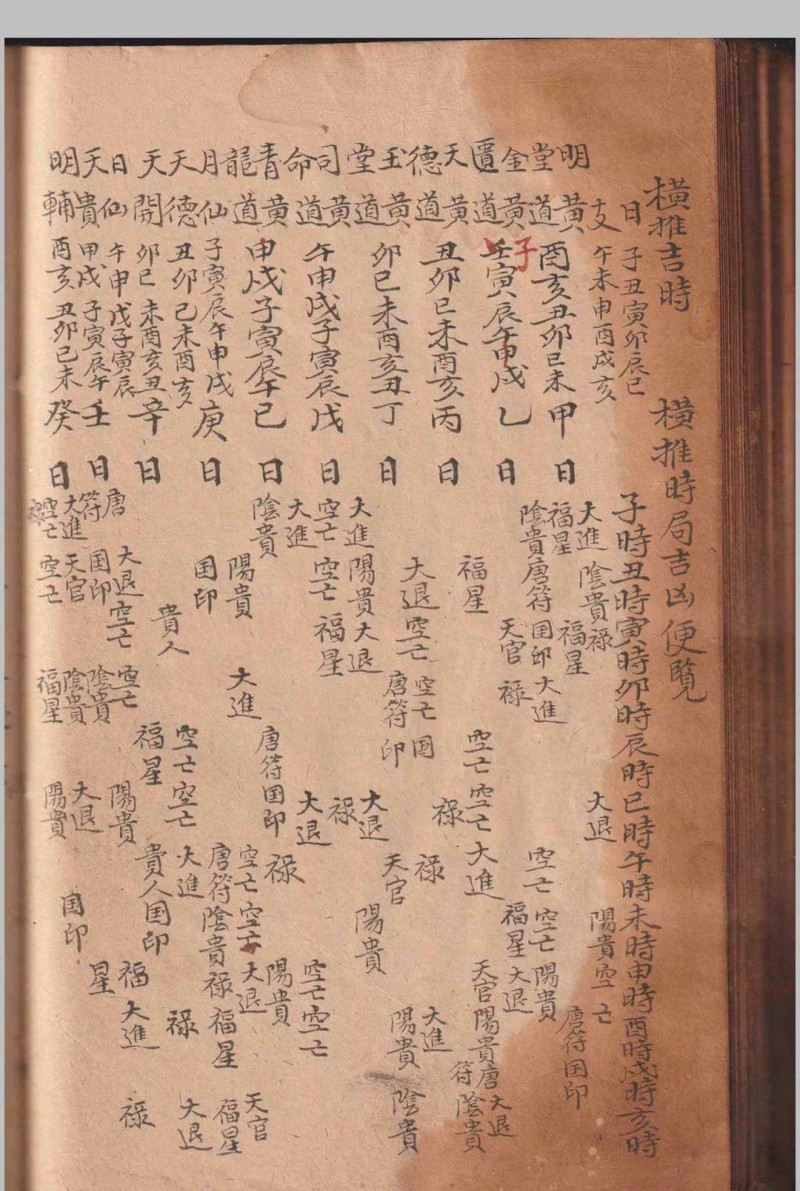 橫推吉時 橫推時局吉凶便覽
日支 子丑寅卯辰巳 午未申酉戌亥 子時丑時寅時卯時辰時巳時午時未時申時酉時戌時亥時
明堂黃道 酉亥丑卯巳未 甲日 大進 陰貴祿 大退 陽貴空亡 福星 福星 唐符国印
金匱黃道 子寅辰午申戌 乙日 陰貴唐符国印大進 空亡空亡陽貴 天官祿 福星大退
天德黃道 丑卯巳未酉亥 丙日 福星 空亡空亡大進 天官陽貴唐符陰貴大退 祿
玉堂黃道 卯巳未酉亥丑 丁日 大退空亡空亡国印 祿 大進 唐符 天官 陽貴陰貴
司命黃道 午申戌子寅辰 戊日 大進陽貴大退 大退 陽貴 空亡空亡福星 祿 空亡空亡
青龍黃道 申戌子寅辰午 己日 大進 大退 陰貴 唐符国印祿 陽貴
月仙 子寅辰午申戌 庚日 陽貴 大進 空亡空亡大退 天官 国印 唐符陰貴祿福星福星
天德 丑卯巳未酉亥
天開 卯巳未酉亥丑 辛日 貴人 空亡空亡大進 祿 大退 福星 貴人国印
日仙 午申戌子寅辰
天貴 甲戌子寅辰午 壬日 唐符 大退空亡空亡 陽貴 福星大進祿 国印 陰貴
明輔 酉亥丑卯巳未 癸日 大進天官陰貴 大退 国印 空亡空亡 福星 陽貴